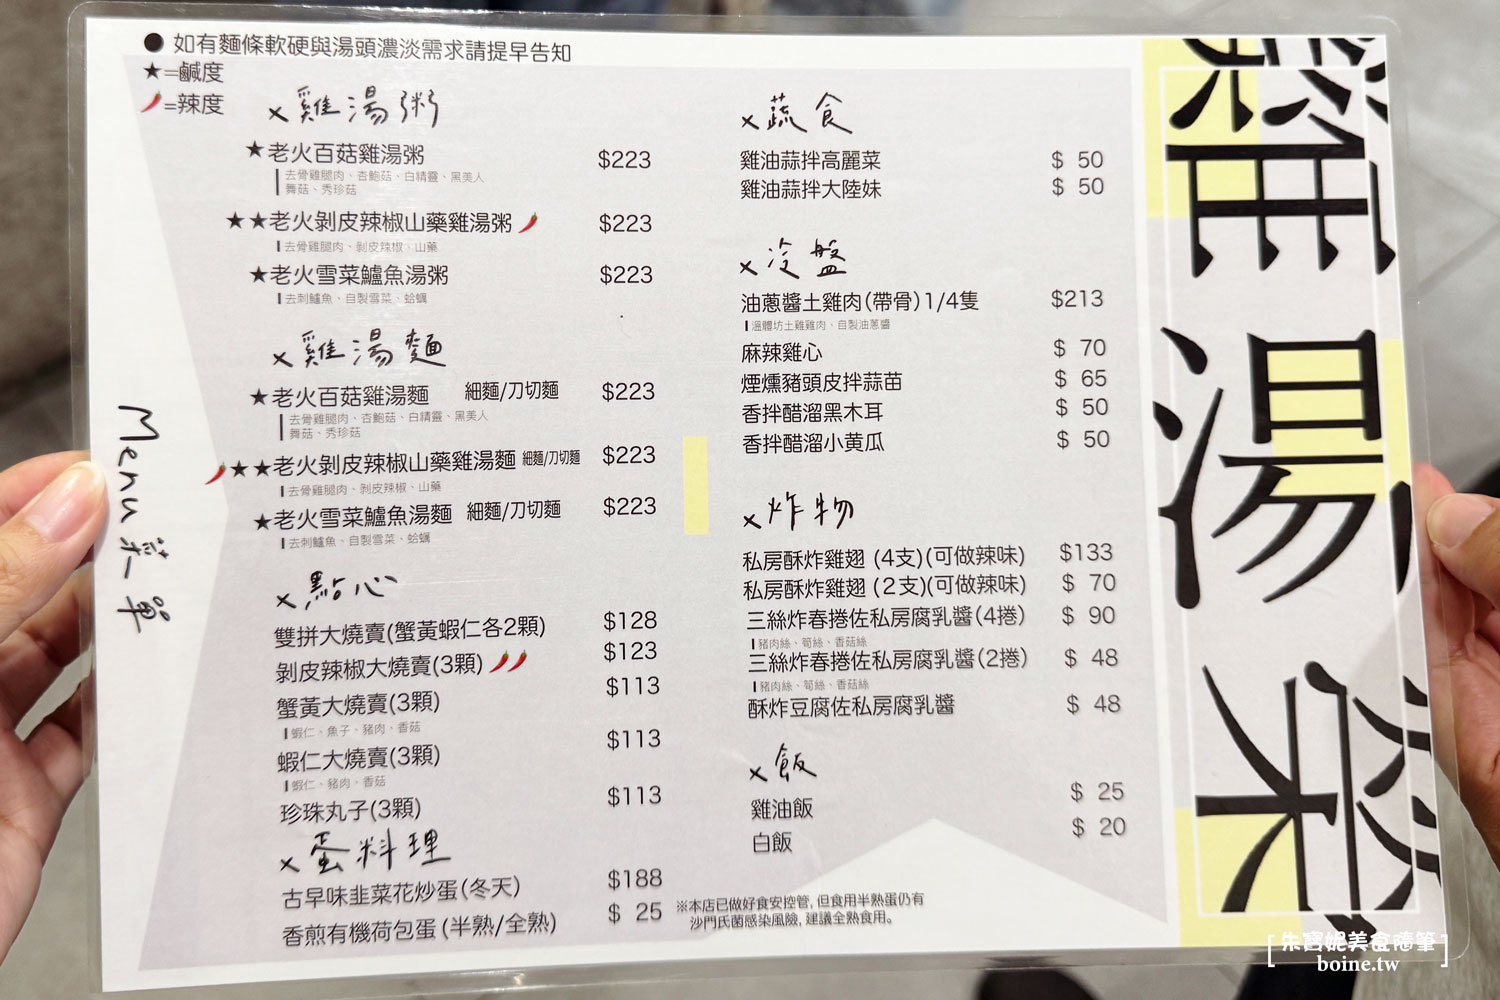 ● 如有麵條軟硬與湯頭濃淡需求請提早告知
★=鹹度
🌶=辣度
×雞湯粥
★老火百菇雞湯粥 $223
去骨雞腿肉、杏鮑菇、白精靈、黑美人
舞菇、秀珍菇
★★老火剝皮辣椒山藥雞湯粥🌶 $223
去骨雞腿肉、剝皮辣椒、山藥
★老火雪菜鱸魚湯粥 $223
去刺鱸魚、自製雪菜、蛤蠣
×雞湯麵
★老火百菇雞湯麵 細麵/刀切麵 $223
去骨雞腿肉、杏鮑菇、白精靈、黑美人
舞菇、秀珍菇
🌶★★老火剝皮辣椒山藥雞湯麵 細麵/刀切麵 $223
去骨雞腿肉、剝皮辣椒、山藥
★老火雪菜鱸魚湯麵 細麵/刀切麵 $223
去刺鱸魚、自製雪菜、蛤蠣
×點心
雙拼大燒賣(蟹黃蝦仁各2顆) $128
剝皮辣椒大燒賣(3顆)🌶🌶 $123
蟹黃大燒賣(3顆) $113
蝦仁、魚子、豬肉、香菇
蝦仁大燒賣(3顆) $113
蝦仁、豬肉、香菇
珍珠丸子(3顆) $113
×蛋料理
古早味韭菜花炒蛋(冬天) $188
香煎有機荷包蛋(半熟/全熟) $ 25
×蔬食
雞油蒜拌高麗菜 $ 50
雞油蒜拌大陸妹 $ 50
×冷盤
油蔥醬土雞肉(帶骨)1/4隻 $213
溫體坊土雞雞肉、自製油蔥醬
麻辣雞心 $ 70
煙燻豬頭皮拌蒜苗 $ 65
香拌醋溜黑木耳 $ 50
香拌醋溜小黃瓜 $ 50
×炸物
私房酥炸雞翅 (4支)(可做辣味) $133
私房酥炸雞翅 (2支)(可做辣味) $ 70
三絲炸春捲佐私房腐乳醬(4捲) $ 90
豬肉絲、筍絲、香菇絲
三絲炸春捲佐私房腐乳醬(2捲) $ 48
豬肉絲、筍絲、香菇絲
酥炸豆腐佐私房腐乳醬 $ 48
×飯
雞油飯 $ 25
白飯 $ 20
※本店已做好食安控管,但食用半熟蛋仍有
沙門氏菌感染風險,建議全熟食用。
Menu菜單
雞湯
[朱寶妮美食隨筆]
boine.tw